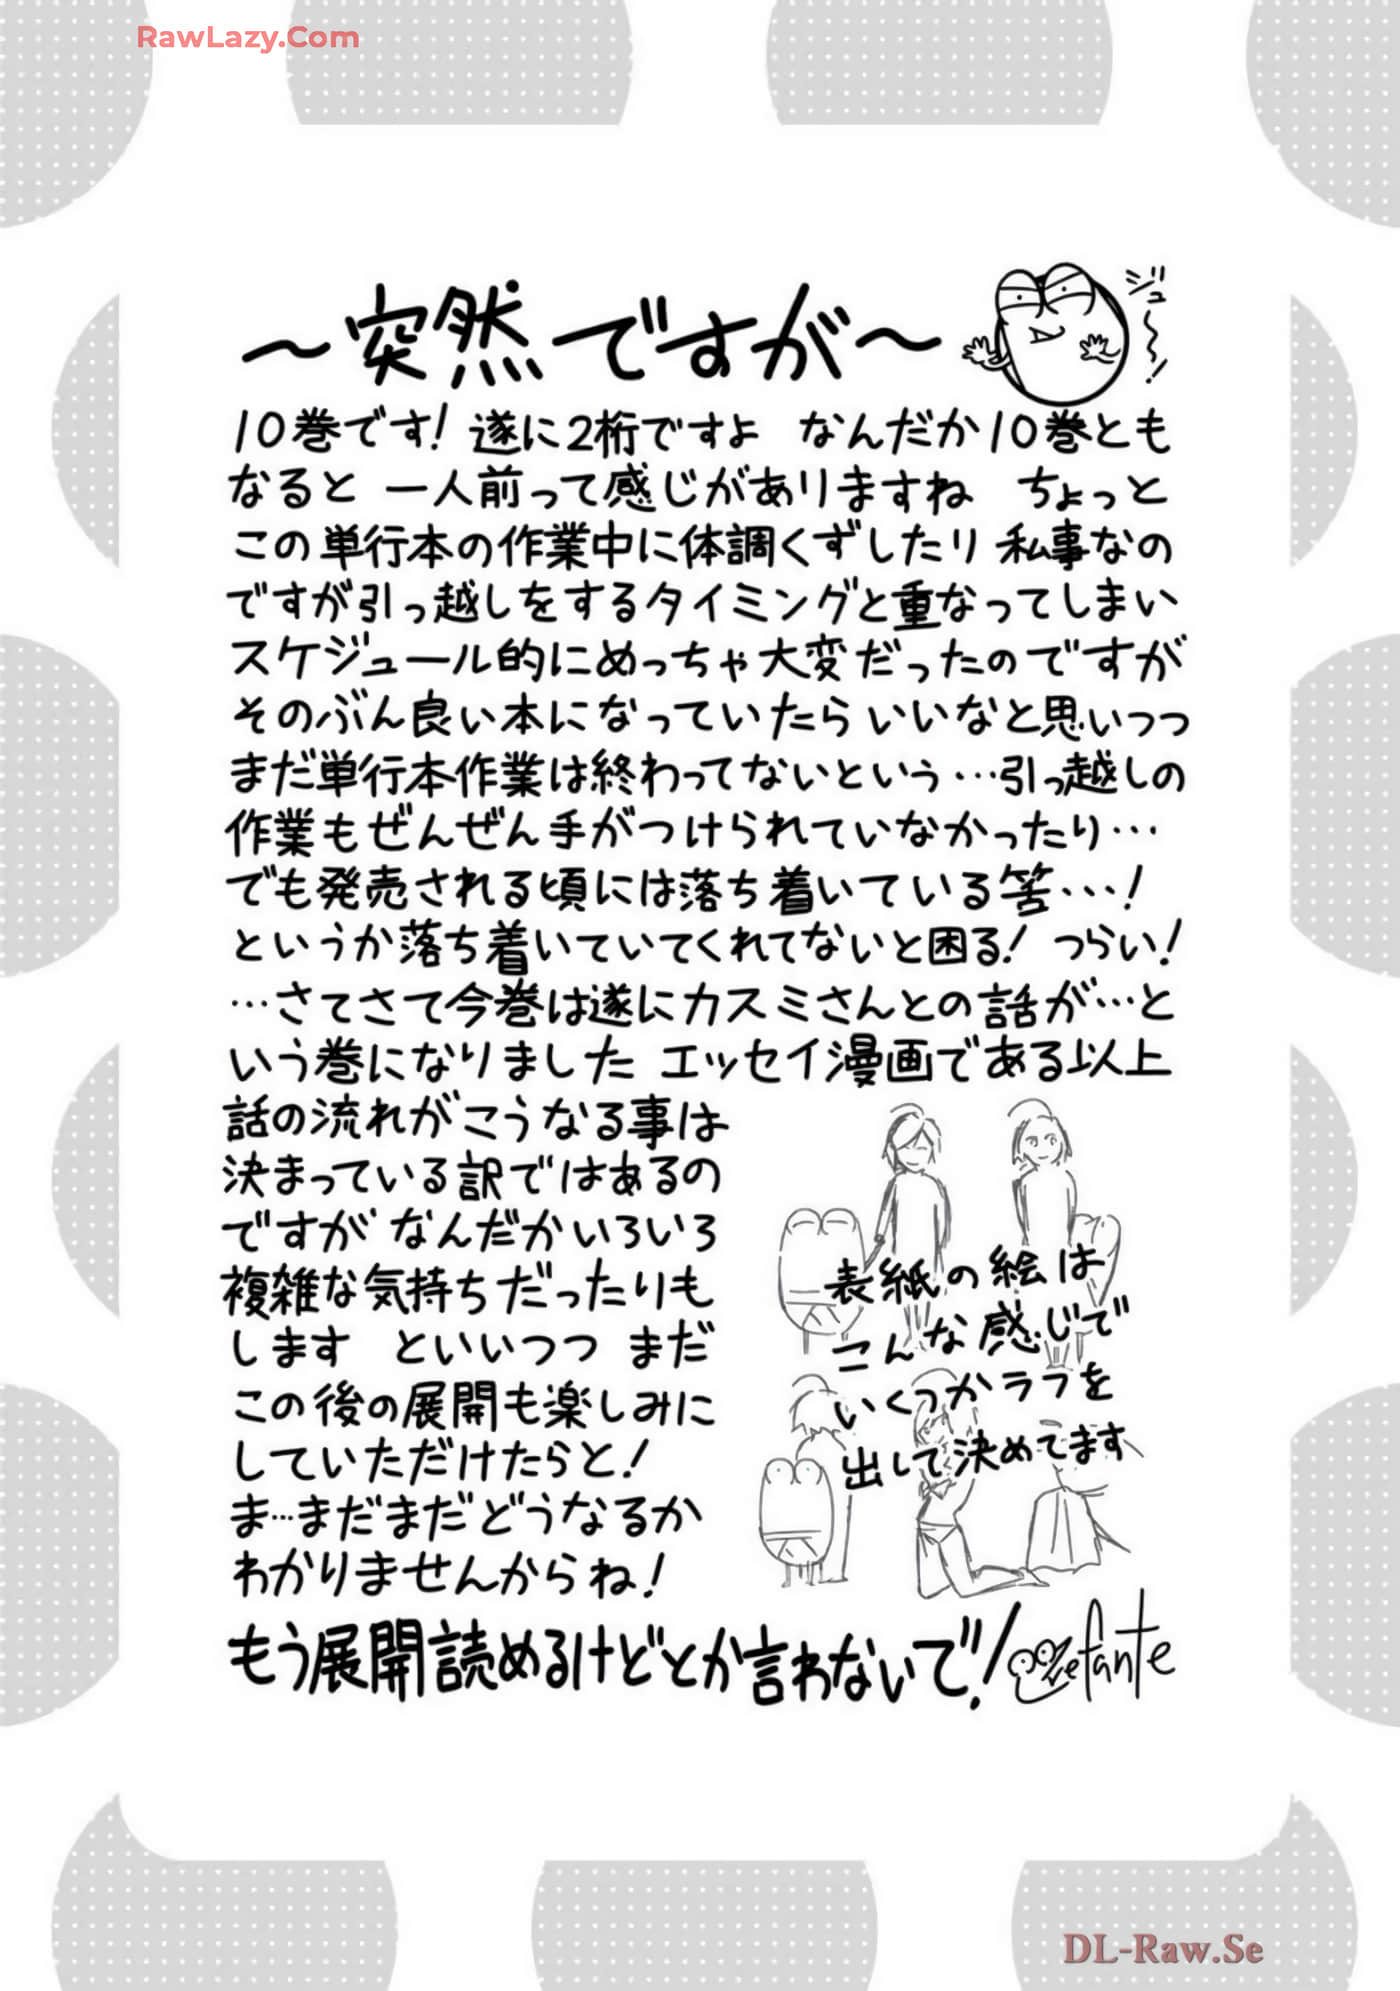 RawLazy.Com
～突然ですが～
ジュ～～！
10巻です！遂に2桁ですよ なんだか10巻とも
なると 一人前って感じがありますね ちょっと
この単行本の作業中に体調くずしたり 私事なの
ですが引っ越しをするタイミングと重なってしまい
スケジュール的にめっちゃ大変だったのですが
そのぶん良い本になっていたらいいなと思いつつ
まだ単行本作業は終わってないという…引っ越しの
作業もぜんぜん手がつけられていなかったり…
でも発売される頃には落ち着いている筈…！
というか落ち着いていてくれてないと困る！つらい！
…さてさて今巻は遂にカスミさんとの話が…と
いう巻になりました エッセイ漫画である以上
話の流れがこうなる事は
決まっている訳ではあるの
ですが なんだかいろいろ
複雑な気持ちだったりも
します といいつつ まだ
この後の展開も楽しみに
していただけたらと！
ま…まだまだどうなるか
わかりませんからね！
表紙の絵は
こんな感じで
いくつかラフを
出して決めてます
もう展開読めるけどとか言わないで！！
efante
DL-Raw.Se